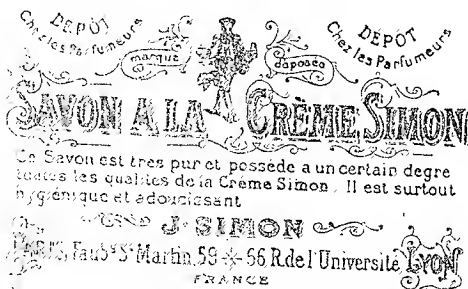 DÉPÔT
Chez les Parfumeurs
DÉPÔT
Chez les Parfumeurs
marque deposée
SAVON A LA CRÈME SIMON
Ce Savon est tres pur et possède a un certain degre
toutes les qualites de la Crême Simon. Il est surtout
hygiénique et adoucissant
J. SIMON
PARIS, Faubg. St. Martin, 59 66 R. de l'Université LYON
FRANCE